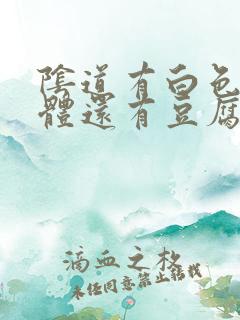 陰道有白色
體還有豆腐
滴血之松
未经同意禁止转载